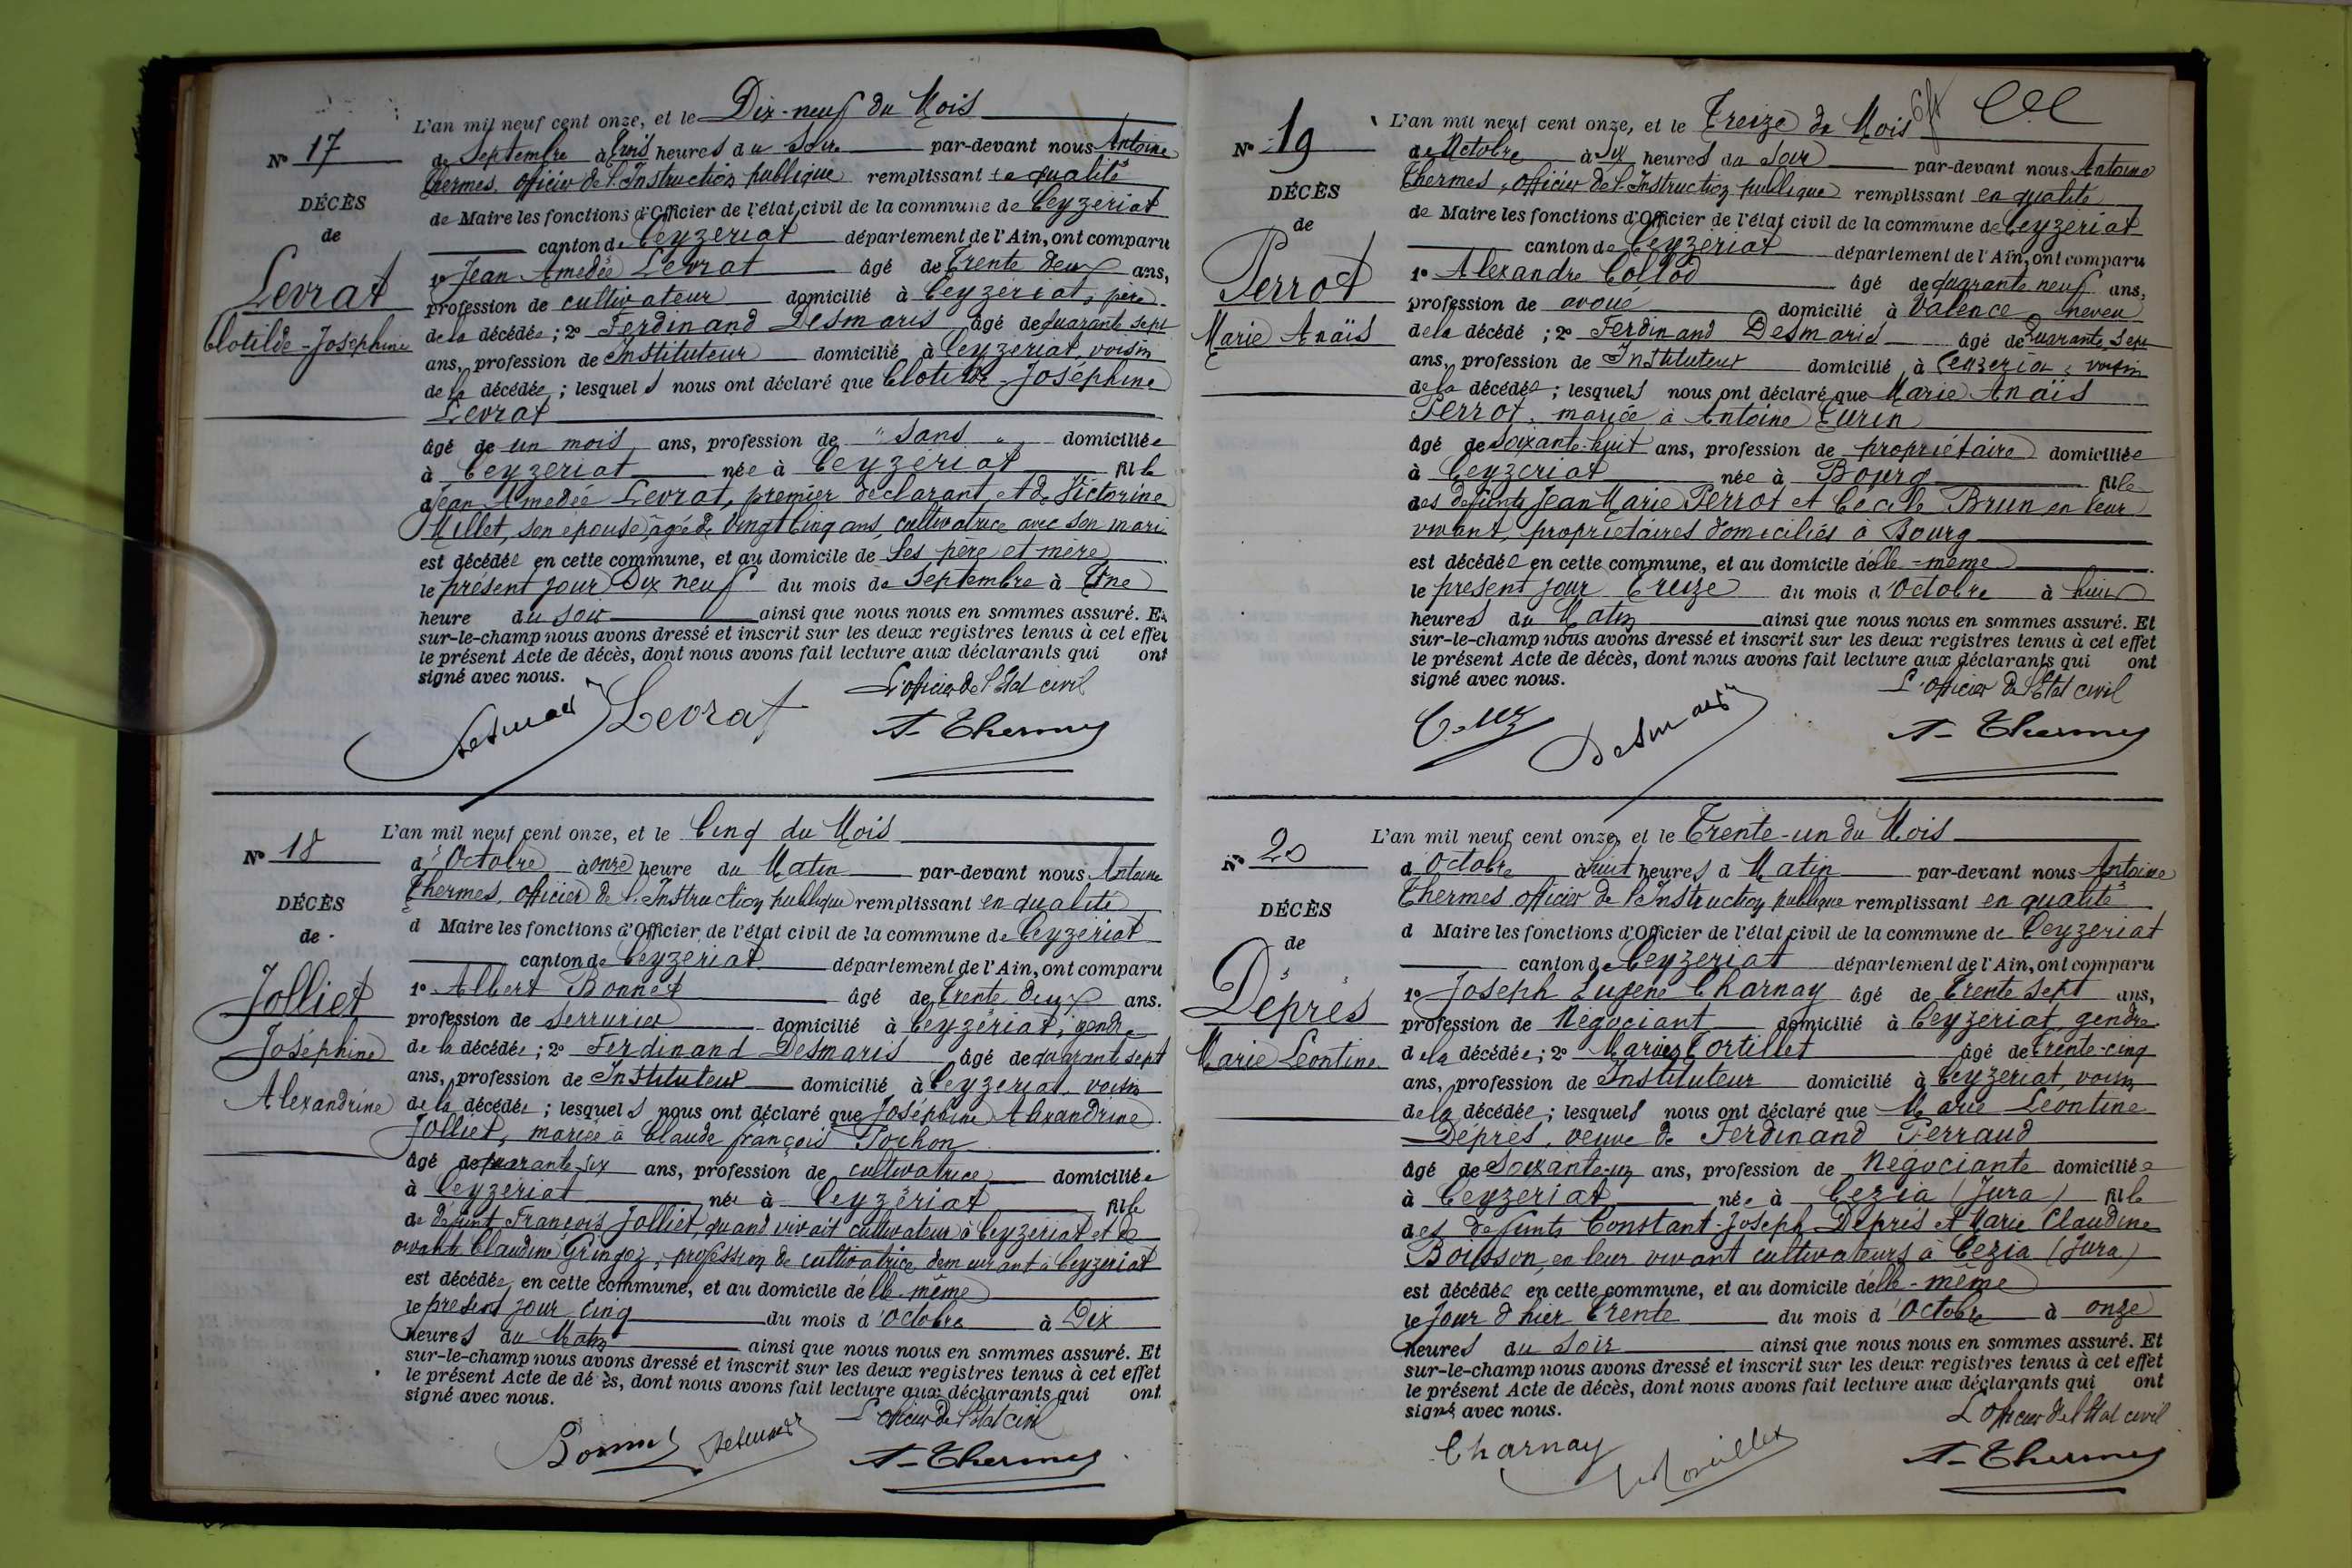 L'an mil neuf cent onze, et le Dix-neuf du Mois
N° 17
de Septembre à trois heures du Soir par-devant nous Antoine
Thermes, officier de l'Instruction publique remplissant en qualité
DÉCÈS
de Maire les fonctions d'Officier de l'état civil de la commune de Ceyzériat
de
canton de Ceyzériat département de l'Ain, ont comparu
1° Jean Amedée Levrat âgé de trente deux ans,
Levrat
profession de cultivateur domicilié à Ceyzériat, père
Clotilde-Joséphine
de la décédée ; 2° Ferdinand Desmaris âgé de quarante sept
ans, profession de Instituteur domicilié à Ceyzériat, voisin
de la décédée ; lesquels nous ont déclaré que Clotilde-Joséphine
Levrat
âgé de un mois ans, profession de " sans " domiciliée
à Ceyzériat née à Ceyzériat fille
de Jean Amedée Levrat, premier déclarant, et de Victorine
Millet, son épouse, âgée de vingt cinq ans, cultivatrice avec son mari
est décédée en cette commune, et au domicile de ses père et mère
le présent jour Dix neuf du mois de Septembre à Une
heure du soir ainsi que nous nous en sommes assuré. Et
sur-le-champ nous avons dressé et inscrit sur les deux registres tenus à cet effet
le présent Acte de décès, dont nous avons fait lecture aux déclarants qui ont
signé avec nous.
L'officier de l'Etat civil
Desmaris Levrat A. Thermes
L'an mil neuf cent onze, et le Cinq du Mois
N° 18
d'Octobre à onze heure du Matin par-devant nous Antoine
Thermes, officier de l'Instruction publique remplissant en qualité
DÉCÈS
d Maire les fonctions d'Officier de l'état civil de la commune de Ceyzériat
de
canton de Ceyzériat département de l'Ain, ont comparu
Jolliet
1° Albert Bonnet âgé de trente deux ans.
profession de Serrurier domicilié à Ceyzériat, gendre
Joséphine
de la décédée ; 2° Ferdinand Desmaris âgé de quarante sept
ans, profession de Instituteur domicilié à Ceyzériat, voisin
Alexandrine
de la décédée ; lesquels nous ont déclaré que Joséphine Alexandrine
Jolliet, mariée à Claude françois Pochon
âgé de quarante-six ans, profession de cultivatrice domiciliée
à Ceyzériat née à Ceyzériat fille
de défunt François Jolliet, quand vivait cultivateur à Ceyzériat et de
vivante Claudine Gringoz, profession de cultivatrice demeurant à Ceyzériat
est décédée en cette commune, et au domicile d'elle-même
le présent jour Cinq du mois d'Octobre à Dix
heures du Matin ainsi que nous nous en sommes assuré. Et
sur-le-champ nous avons dressé et inscrit sur les deux registres tenus à cet effet
le présent Acte de décès, dont nous avons fait lecture aux déclarants qui ont
signé avec nous.
L'officier de l'Etat civil
Bonnet Desmaris A. Thermes
L'an mil neuf cent onze, et le Treize du Mois
N° 19
de Octobre à Six heures du Soir par-devant nous Antoine
Thermes, officier de l'Instruction publique remplissant en qualité
DÉCÈS
de Maire les fonctions d'Officier de l'état civil de la commune de Ceyzériat
de
canton de Ceyzériat département de l'Ain, ont comparu
Perrot
1° Alexandre Collod âgé de quarante neuf ans,
profession de avoué domicilié à Valence neveu
Marie Anaïs
de la décédé ; 2° Ferdinand Desmaris âgé de quarante sept
ans, profession de Instituteur domicilié à Ceyzériat, voisin
de la décédée ; lesquels nous ont déclaré que Marie Anaïs
Perrot, mariée à Antoine Turin
âgé de soixante-huit ans, profession de propriétaire domiciliée
à Ceyzériat née à Bourg fille
des défunts Jean Marie Perrot et Cécile Brun en leur
vivant, propriétaires domiciliés à Bourg
est décédée en cette commune, et au domicile d'elle-même
le présent jour treize du mois d'Octobre à huit
heures du Matin ainsi que nous nous en sommes assuré. Et
sur-le-champ nous avons dressé et inscrit sur les deux registres tenus à cet effet
le présent Acte de décès, dont nous avons fait lecture aux déclarants qui ont
signé avec nous.
L'officier de l'Etat civil
Desmaris A. Thermes
L'an mil neuf cent onze, et le Trente-un du Mois
N° 20
d'Octobre à huit heures d Matin par-devant nous Antoine
Thermes officier de l'Instruction publique remplissant en qualité
DÉCÈS
d Maire les fonctions d'Officier de l'état civil de la commune de Ceyzériat
de
canton de Ceyzériat département de l'Ain, ont comparu
Déprés
1° Joseph Eugène Charnay âgé de trente sept ans,
profession de Négociant domicilié à Ceyzériat, gendre
Marie Léontine
de la décédée ; 2° Marius Tortillet âgé de trente-cinq
ans, profession de Instituteur domicilié à Ceyzériat, voisin
de la décédée ; lesquels nous ont déclaré que Marie Léontine
Déprès, veuve de Ferdinand Perraud
âgé de soixante-un ans, profession de Négociante domiciliée
à Ceyzériat née à Cézia (Jura) fille
des défunts Constant-Joseph Déprés et Marie Claudine
Boisson, en leur vivant cultivateurs à Cézia (Jura)
est décédée en cette commune, et au domicile d'elle-même
le jour d'hier trente du mois d'Octobre à onze
heures du soir ainsi que nous nous en sommes assuré. Et
sur-le-champ nous avons dressé et inscrit sur les deux registres tenus à cet effet
le présent Acte de décès, dont nous avons fait lecture aux déclarants qui ont
signé avec nous.
L'officier de l'Etat civil
Charnay A. Thermes